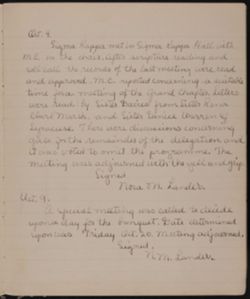 Oct. 4.
Sigma Kappa met in Sigma Kappa Hall with
M.C. in the chair. After scripture reading and
roll call the records of the last meeting were read
and approved. M.C. reported concerning a suitable
time for a meeting of the Grand Chapter. Letters
were read by Sister Davies from Sister Rena
Clare Marsh, and Sister Eunice Warren of
Syracuse. There were discussions concerning
for the remainder of the delegation and
it was voted to omit the programme. The
meeting was adjourned with the yell and grip.
Signed
Nora M. Lander.
Oct. 9.
A special meeting was called to decide
upon a day for the banquet. Date determined
upon was Friday Oct. 20. Meeting adjourned.
Signed.
N.M. Lander.